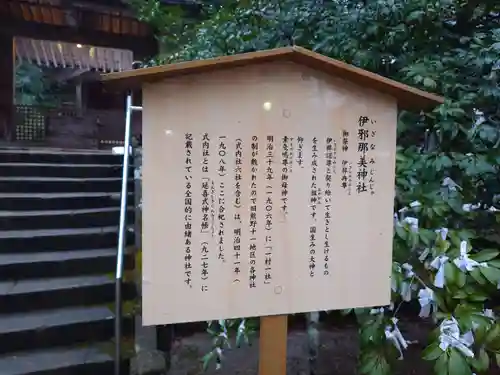 伊邪那美神社
いざなみじんじゃ
御祭神 伊弉冉尊
伊弉諾尊と契り給いて生きとし生けるもの
を生み成された祖神です。国生みの大神と
仰ぎます。
素戔嗚尊の御母神です。
明治三十九年(一九〇六年)に「一村一社」
の制が敷かれたので旧熊野十一地区の各神社
(式内社六社を含む)は、明治四十一年(
一九〇八年)ここに合祀されました。
式内社とは「延喜式神名帳」(九二七年)に
記載されている全国的に由緒ある神社です。